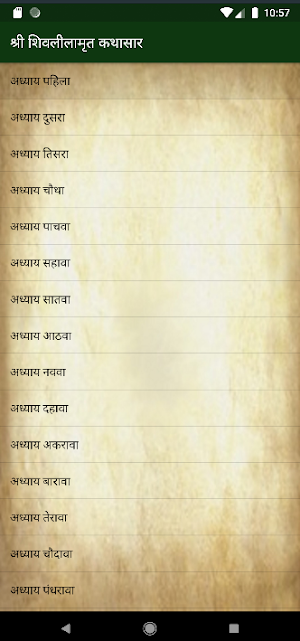 10:57
श्री शिवलीलामृत कथासार
अध्याय पहिला
अध्याय दुसरा
अध्याय तिसरा
अध्याय चौथा
अध्याय पाचवा
अध्याय सहावा
अध्याय सातवा
अध्याय आठवा
अध्याय नववा
अध्याय दहावा
अध्याय अकरावा
अध्याय बारावा
अध्याय तेरावा
अध्याय चौदावा
अध्याय पंधरावा